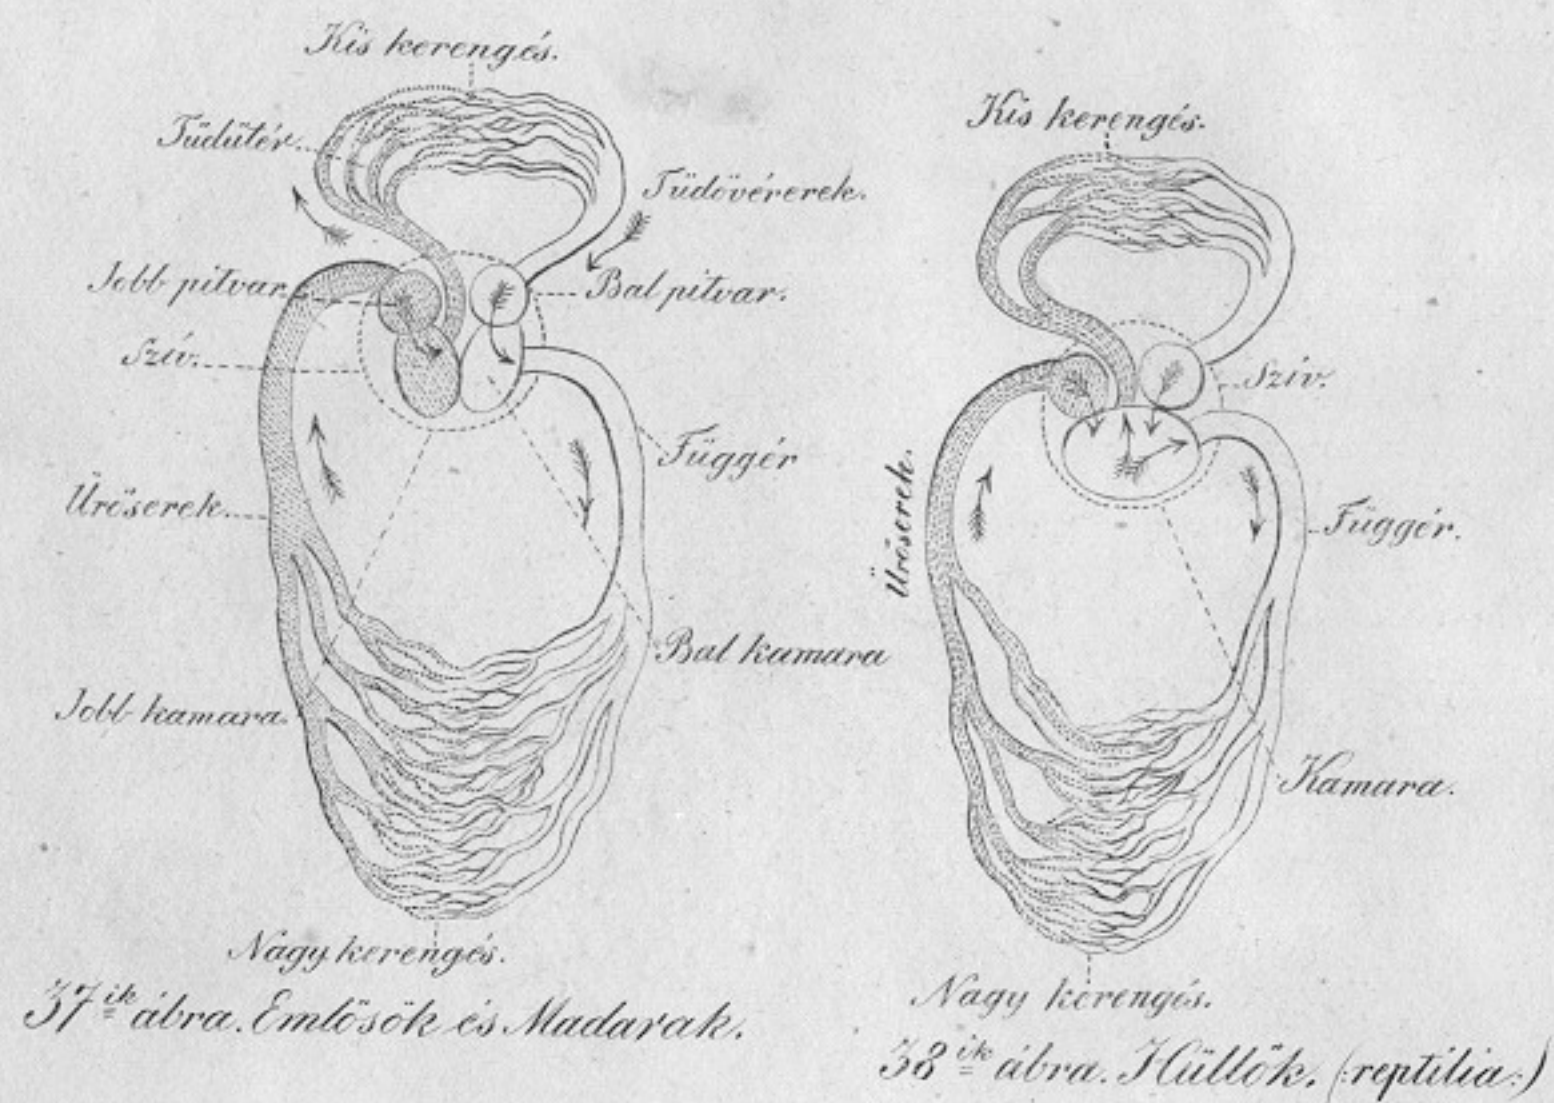 Kis kerengés.
Tüdütér.
Tüdövérerek.
Jobb pitvar
Bal pitvar.
Szív.
Függér
Üröserek.
Bal kamara
Jobb kamara.
Nagy kerengés.
37ik ábra. Emlősök és Madarak.
Kis kerengés.
Szív.
Üröserek.
Függér.
Kamara.
Nagy kerengés.
38ik ábra. Hüllők. (:reptilia:)